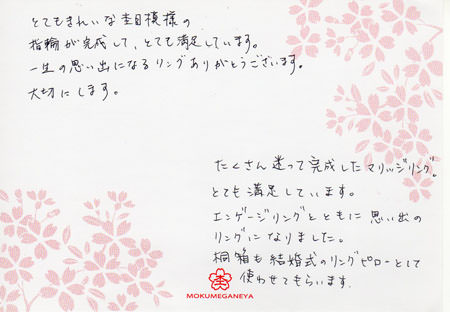 とてもきれいな杢目模様の
指輪が完成して、とても満足しています。
一生の思い出になるリングありがとうございます。
大切にします。
たくさん迷って完成したマリッジリング。
とても満足しています。
エンゲージリングとともに思い出の
リングになりました。
桐箱も結婚式のリングピローとして
使わせてもらいます。
杢
MOKUMEGANEYA